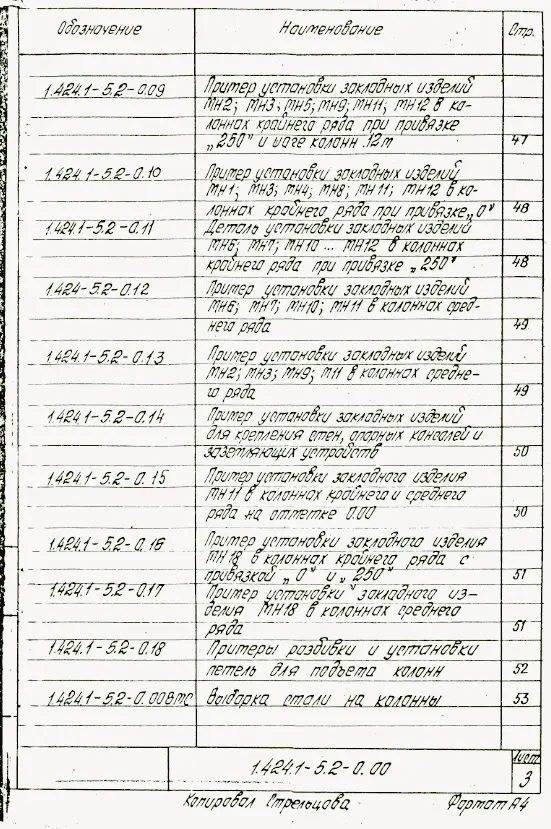 Обозначение Наименование Стр.
1.424.1-5.2-0.09 Пример установки закладных изделий
МН2; МН3; МН5; МН9; МН11; МН12 в ко-
лоннах крайнего ряда при привязке
„250" и шаге колонн 12м 47
1.424.1-5.2-0.10 Пример установки закладных изделий
МН1; МН3; МН4; МН8; МН11; МН12 в ко-
лоннах крайнего ряда при привязке „0" 48
1.424.1-5.2-0.11 Деталь установки закладных изделий
МН6; МН7; МН10 ... МН12 в колоннах
крайнего ряда при привязке „250" 48
1.424-5.2-0.12 Пример установки закладных изделий
МН6; МН7; МН10; МН11 в колоннах сред-
него ряда 49
1.424.1-5.2-0.13 Пример установки закладных изделий
МН2; МН3; МН9; М11 в колоннах средне-
го ряда 49
1.424.1-5.2-0.14 Пример установки закладных изделий
для крепления стен, опорных консолей и
заземляющих устройств 50
1.424.1-5.2-0.15 Пример установки закладного изделия
МН11 в колоннах крайнего и среднего
ряда на отметке 0.00 50
1.424.1-5.2-0.16 Пример установки закладного изделия
МН18 в колоннах крайнего ряда с
привязкой „0" и „250" 51
1.424.1-5.2-0.17 Пример установки закладного из-
делия МН18 в колоннах среднего
ряда 51
1.424.1-5.2-0.18 Примеры разбивки и установки
петель для подъема колонн 52
1.424.1-5.2-0.00ВМС Выборка стали на колонны 53
1.424.1-5.2-0.00 Лист
3
Копировал Стрельцова Формат А4